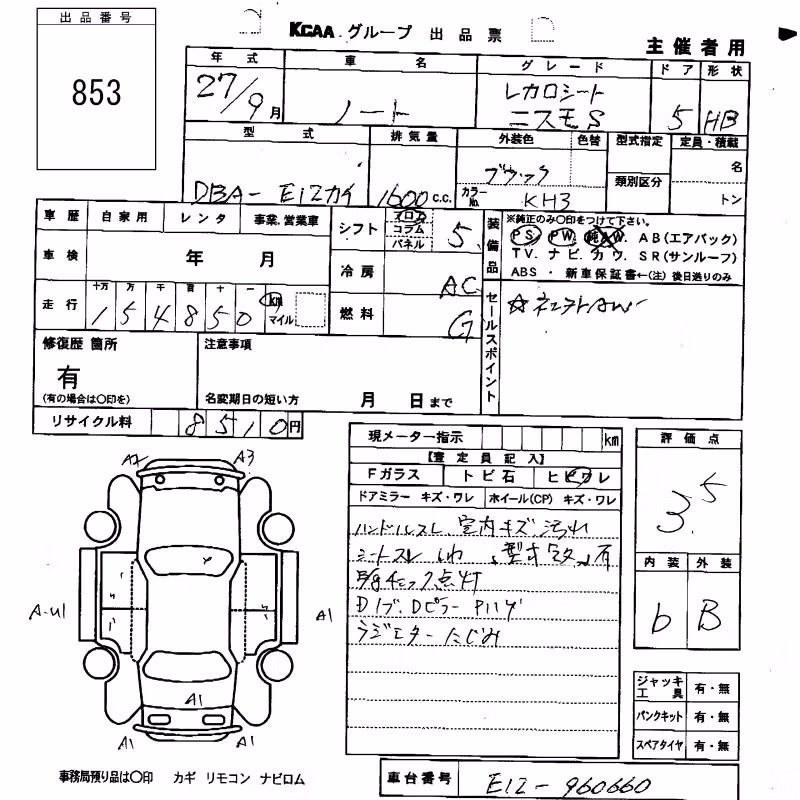 出品番号
853
KCAA グループ 出品票
主催者用
年式 車名 グレード ドア 形状
27/9月 ノート レカロシート ニスモS 5 HB
型式 排気量 外装色 色替 型式指定 定員・積載
DBA-E12カイ 1600 C.C. ブラック 類別区分 名
カラーNo. KH3 トン
車歴 自家用 レンタ 事業.営業車
シフト フロア コラム パネル 5
装備品 ※純正のみ○印をつけて下さい。
PS. PW. 純AW. AB(エアバック)
TV. ナビ. カワ. SR(サンルーフ)
ABS・新車保証書←(注)後日送りのみ
車検 年 月
冷房 AC
走行 十万 万 千 百 十 一
154850 km マイル
燃料 G
セールスポイント
☆社外AW
修復歴 箇所
有
(有の場合は○印を)
注意事項
名変期日の短い方 月 日まで
リサイクル料 8510円
現メーター指示 km
【査定員記入】
Fガラス トビ石 ヒビワレ
ドアミラー キズ・ワレ ホイール(CP) キズ・ワレ
ハンドルスレ 室内キズ 汚れ
シートスレ しわ
有
E/gチェック点灯
ラジエター にじみ
評価点
3.5
内装 外装
b B
A2 A3
A-U1 A1
A1
A1 A1
ジャッキ工具 有・無
パンクキット 有・無
スペアタイヤ 有・無
事務局預り品は○印 カギ リモコン ナビロム
車台番号 E12-960660